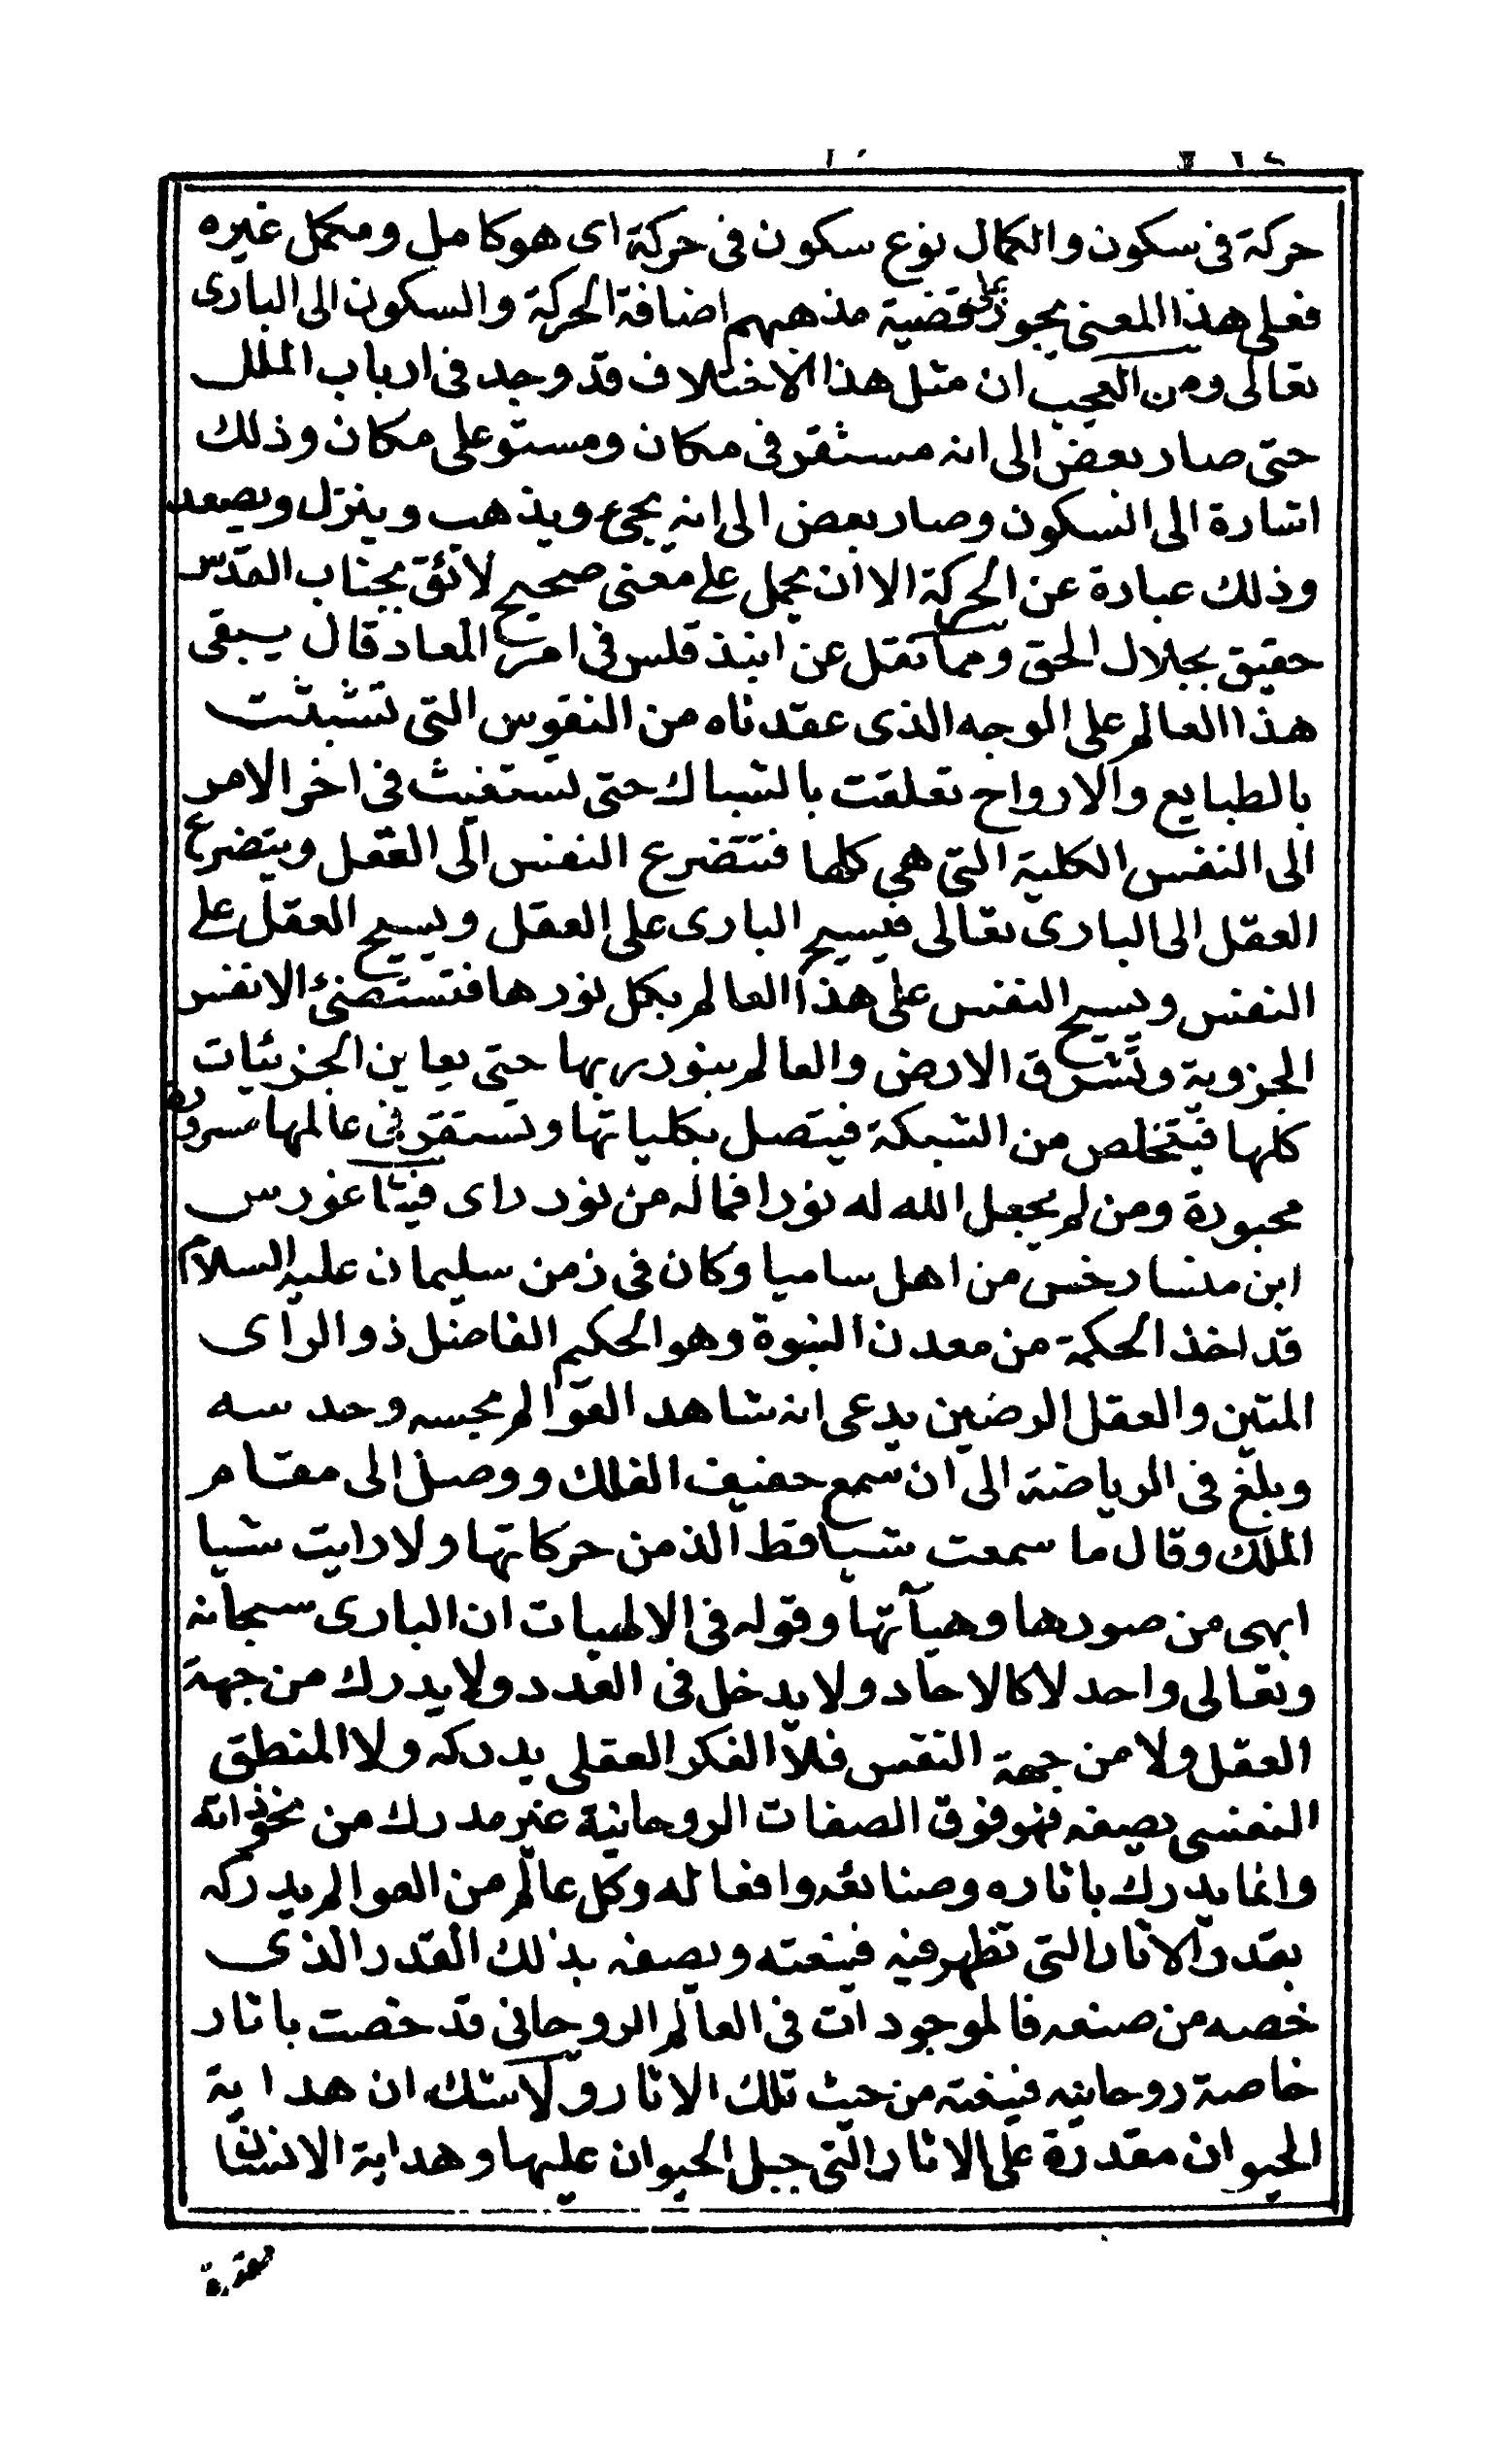 حركة فى سكون والكمال نوع سكون فى حركة اى هو كامل ومكمل غيره
فعلى هذا المعنى يجوز على قضية مذهبهم اضافة الحركة والسكون الى البارى
تعالى ومن العجب ان مثل هذا الاختلاف قد وجد فى ارباب الملل
حتى صار بعض الى انه مستقر فى مكان ومستو على مكان وذلك
اشارة الى السكون وصار بعض الى انه يجئ ويذهب وينزل ويصعد
وذلك عبارة عن الحركة الا ان يحمل على معنى صحيح لائق بجناب القدس
حقيق بجلال الحق ومما نقل عن ابنذ قلس فى امر المعاد قال يبقى
هذا العالم على الوجه الذى عقدناه من النفوس التى تشبثت
بالطبايع والارواح تعلقت بالشباك حتى تستغيث فى اخر الامر
الى النفس الكلية التى هى كلها فتتضرع النفس الى العقل ويتضرع
العقل الى البارى تعالى فيسيح البارى على العقل ويسيح العقل على
النفس ويسيح النفس على هذا العالم بكل نورها فتستضئ الانفس
الجزوية وتشرق الارض والعالم بنور ربها حتى يعاين الجزئيات
كلها فيتخلص من الشبكة فيتصل بكلياتها وتستقر فى عالمها مسرورة
محبورة ومن لم يجعل الله له نورا فماله من نور راى فيثاغورس
ابن منسارخس من اهل ساميا وكان فى زمن سليمان عليه السلام
قد اخذ الحكمة من معدن النبوة وهو الحكيم الفاضل ذو الراى
المتين والعقل الرضين يدعى انه شاهد العوالم بحسه وحدسه
وبلغ فى الرياضة الى ان سمع حفيف الفلك ووصل الى مقام
الملك وقال ما سمعت شيا قط الذ من حركاتها ولا رايت شيا
ابهى من صورها وهيآتها وقوله فى الالهيات ان البارى سبحانه
وتعالى واحد لا كالاحاد ولا يدخل فى العدد ولا يدرك من جهة
العقل ولا من جهة النفس فلا الفكر العقلى يدركه ولا المنطق
النفسى يصفه فهو فوق الصفات الروحانية غير مدرك من نحو ذاته
وانما يدرك باثاره وصنائعه وافعاله وكل عالم من العوالم يدركه
بقدر الاثار التى تظهر فيه فينعته ويصفه بذلك القدر الذى
خصه من صنعه فالموجودات فى العالم الروحانى قد خصت باثار
خاصة روحانيه فينعته من حيث تلك الاثار ولا شك ان هداية
الحيوان مقدرة على الاثار التى جبل الحيوان عليها وهداية الانسان